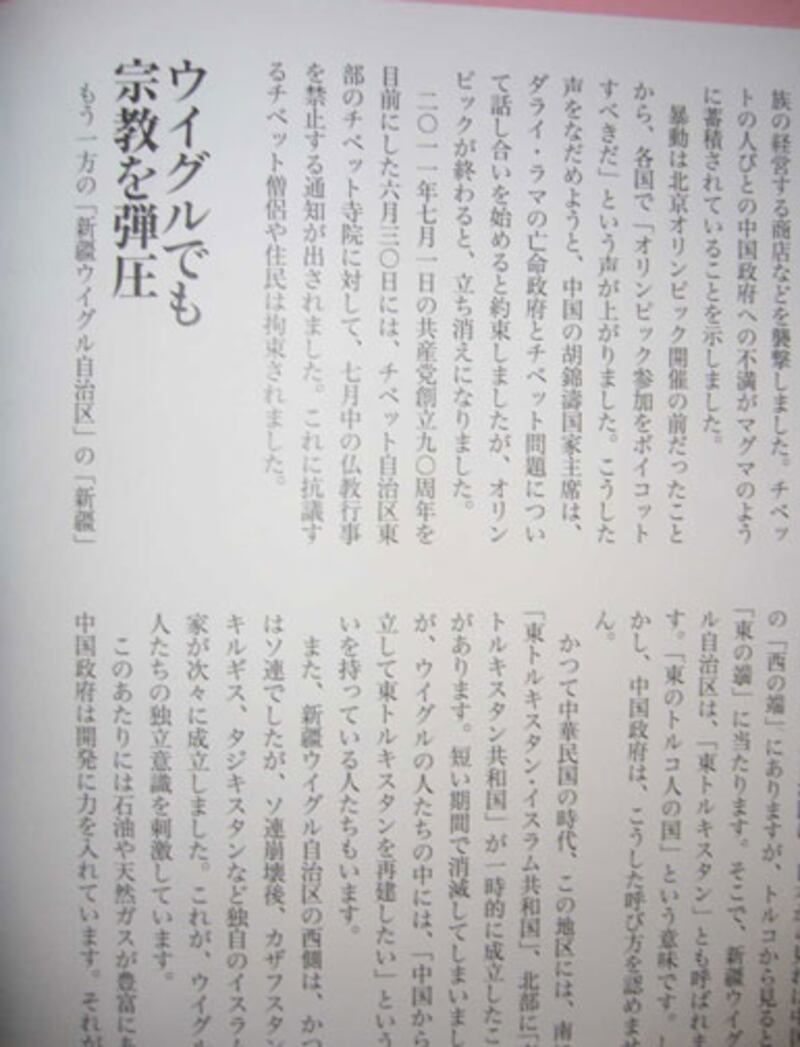 族の経営する商店などを襲撃しました。チベッ
トの人びとの中国政府への不満がマグマのよう
に蓄積されていることを示しました。
暴動は北京オリンピック開催の前だったこと
から、各国で「オリンピック参加をボイコット
すべきだ」という声が上がりました。こうした
声をなだめようと、中国の胡錦濤国家主席は、
ダライ・ラマの亡命政府とチベット問題につい
て話し合いを始めると約束しましたが、オリン
ピックが終わると、立ち消えになりました。
二〇一一年七月一日の共産党創立九〇周年を
目前にした六月三〇日には、チベット自治区東
部のチベット寺院に対して、七月中の仏教行事
を禁止する通知が出されました。これに抗議す
るチベット僧侶や住民は拘束されました。
ウイグルでも
宗教を弾圧
もう一方の「新疆ウイグル自治区」の「新疆」
の「西の端」にありますが、トルコから見ると
「東の端」に当たります。そこで、新疆ウイグ
ル自治区は、「東トルキスタン」とも呼ばれま
す。「東のトルコ人の国」という意味です。し
かし、中国政府は、こうした呼び方を認めませ
ん。
かつて中華民国の時代、この地区には、南
「東トルキスタン・イスラム共和国」、北部に「
トルキスタン共和国」が一時的に成立したこ
があります。短い期間で消滅してしまいまし
が、ウイグルの人たちの中には、「中国から
立して東トルキスタンを再建したい」という
いを持っている人たちもいます。
また、新疆ウイグル自治区の西側は、かつ
はソ連でしたが、ソ連崩壊後、カザフスタン
キルギス、タジキスタンなど独自のイスラム
家が次々に成立しました。これが、ウイグル
人たちの独立意識を刺激しています。
このあたりには石油や天然ガスが豊富にあ
中国政府は開発に力を入れています。それが